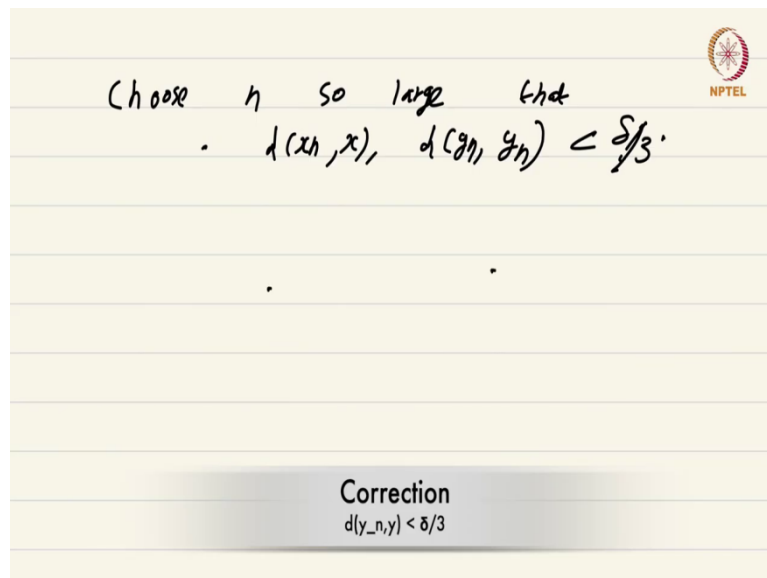 NPTEL
Choose n so large that
d(xn, x), d(yn, yn) < δ/3.
Correction
d(y_n,y) < δ/3